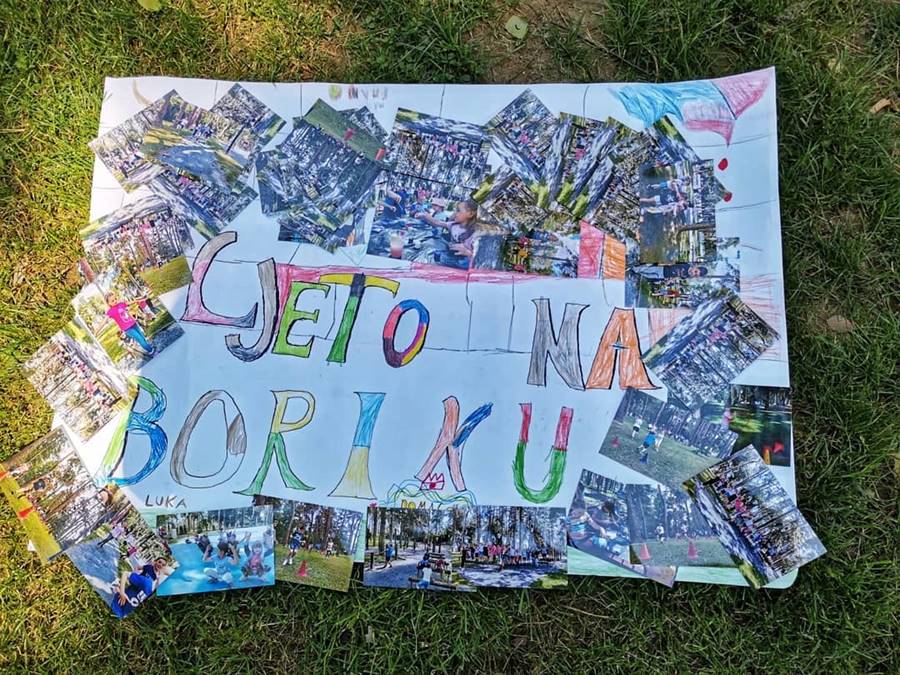 LJETO NA
BORIKU
LUKA